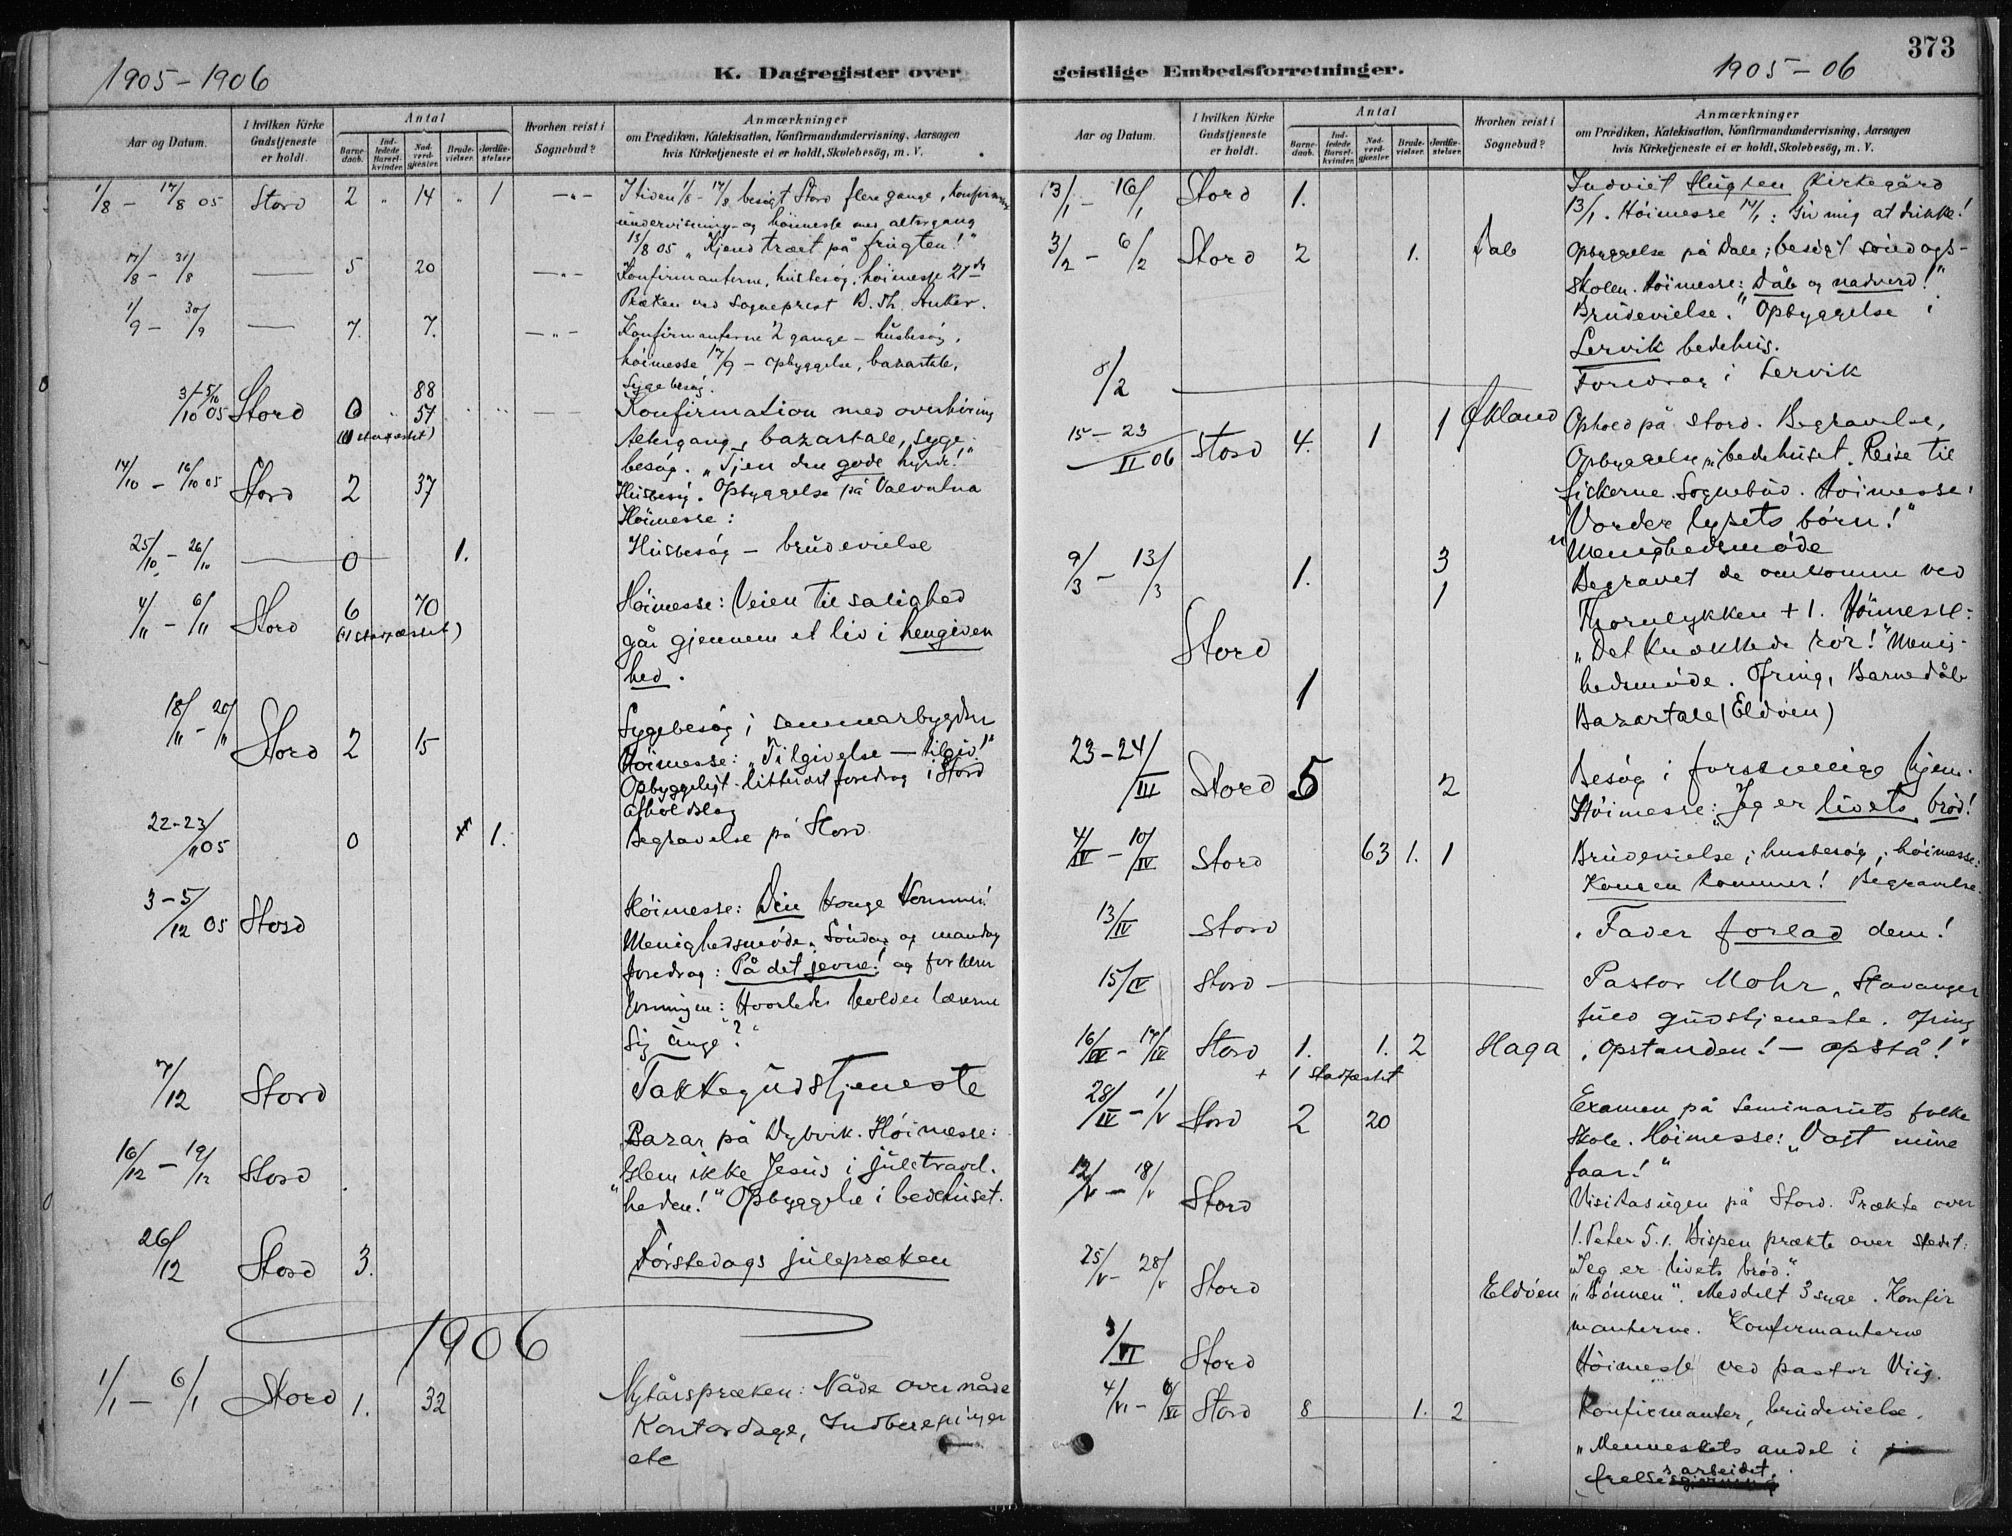 1905-1906
K. Dagregister over
Aar og Datum.
I hvilken Kirke Gudstjeneste er holdt.
Antal
Barnedaab.
Indledede Barselkvinder.
Nadverdgjester.
Brudevielser.
Jordfæstelser.
Hvorhen reist i Sognebud?
Anmærkninger
om Prædiken, Katekisation, Konfirmandundervisning, Aarsagen
hvis Kirketjeneste ei er holdt, Skolebesøg, m. V.
1/8 - 17/8 05 Stord 2 " 14 " 1 —"— I tiden 1/8 - 17/8 besøgt Stord flere gange, konfirmant
undervisning og høimesse med altergang
13/8 05 "Kjend træet på frugten!"
17/8 - 31/8 — 5 20 —"— Konfirmanterne, husbesøg, høimesse 27de
Præken ved sogneprest B. Th. Anker.
1/9 - 30/9 — 7. 7. —"— Konfirmanterne 2 gange - husbesøg,
høimesse 17/9 - opbyggelse, bazartale,
sygebesøg.
88
3/10 - 5/10 05 Stord 0 " 57 " " — Konfirmation med overhøring
Altergang, bazartale, syge-
besøg. "Tjen den gode hyrde!"
14/10 - 16/10 05 Stord 2 37 Husbesøg. Opbyggelse på Valvatna
Høimesse:
25/10 - 26/10 — 0 1. Husbesøg - brudevielse
4/11 - 6/11 Stord 6 70 Høimesse: Veien til salighed
(1 stadfæstet) går gjennem et liv i hengiven
hed.
18/11 - 20/11 Stord 2 15 Sygebesøg i sømmarbygden
Høimesse: "Tilgivelse - tilgiv!"
Opbyggeligt-litterært foredrag i Stord
afholdslag
22-23/11 05 0 1. Begravelse på Stord
3-5/12 05 Stord Høimesse: Din konge kommer!
Menighedsmøde. Søndag og mandag
foredrag: På det jevne! og for lærer
foreningen: Hvorledes holder læreren
sig ung?"
7/12 Stord Takkegudstjeneste
16/12 - 19/12 Stord Bazar på Dybvik. Høimesse:
"Glem ikke Jesus i juletravel-
heden!" Opbyggelse i bedehuset.
26/12 Stord 3. Førstedags julepræken
1906
1/1 - 6/1 Stord 1. 32 Nytårspræken: Nåde over nåde
Kontordage, Indberetninger
etc
373
geistlige Embedsforretninger.
1905-06
Aar og Datum.
I hvilken Kirke Gudstjeneste er holdt.
Antal
Barnedaab.
Indledede Barselkvinder.
Nadverdgjester.
Brudevielser.
Jordfæstelser.
Hvorhen reist i Sognebud?
Anmærkninger
om Prædiken, Katekisation, Konfirmandundervisning, Aarsagen
hvis Kirketjeneste ei er holdt, Skolebesøg, m. V.
13/1 - 16/1 Stord 1. Indviet Huglen kirkegård
13/1. Høimesse 14/1: Giv mig at drikke!
3/2 - 6/2 Stord 2 1. Dale Opbyggelse på Dale; besøgt søndags-
skolen. Høimesse: "Dåb og nadverd!"
Brudevielse. Opbyggelse i
Lervik bedehus.
8/2 — Foredrag i Lervik
15-23/II 06 Stord 4. 1 1 Økland Ophold på Stord. Begravelse,
Opbyggelse i bedehuset. Reise til
fiskerne. Sognebud. Høimesse:
"Vorder lysets børn!"
Menighedsmøde
9/3 - 13/3 Stord 1. 3 Begravet de omkomne ved
1 Thornlykken + 1. Høimesse:
"Det knækkede rør!" Menig-
hedsmøde. Ofring, Barnedåb
1 Bazartale (Eldøen)
23-24/III Stord 5 2 Besøg i forskjellige hjem.
Høimesse: "Jeg er livets brød!
4/IV - 10/IV Stord 63 1. 1 Brudevielse; husbesøg; høimesse:
Kongen kommer! Begravelse.
13/IV Stord "Fader forlad dem!
15/IV Stord — Pastor Mohr, Stavanger
holdt gudstjeneste. Ofring
16/IV - 17/IV Stord 1. 1. 2 Haga "Opstanden! - opstå!"
+ 1 stadfæstet
28/IV - 1/V Stord 2 20 Examen på seminariets folke
skole. Høimesse: "Vogt mine
faar!"
12/V - 18/V Stord Visitasugen på Stord. Prækte over
1. Peter 5.1. Bispen prækte over stedet:
"Jeg er livets brød."
25/V - 28/V Stord Eldøen "Bønnen". Meddelt 3 syge. Konfir
manterne. Konfirmanterne
3/VI Stord Høimesse ved pastor Viig.
4/VI - 6/VI Stord 8 1. 2 Konfirmanter, brudevielse.
"Menneskets andel i
frelsesarbeidet.